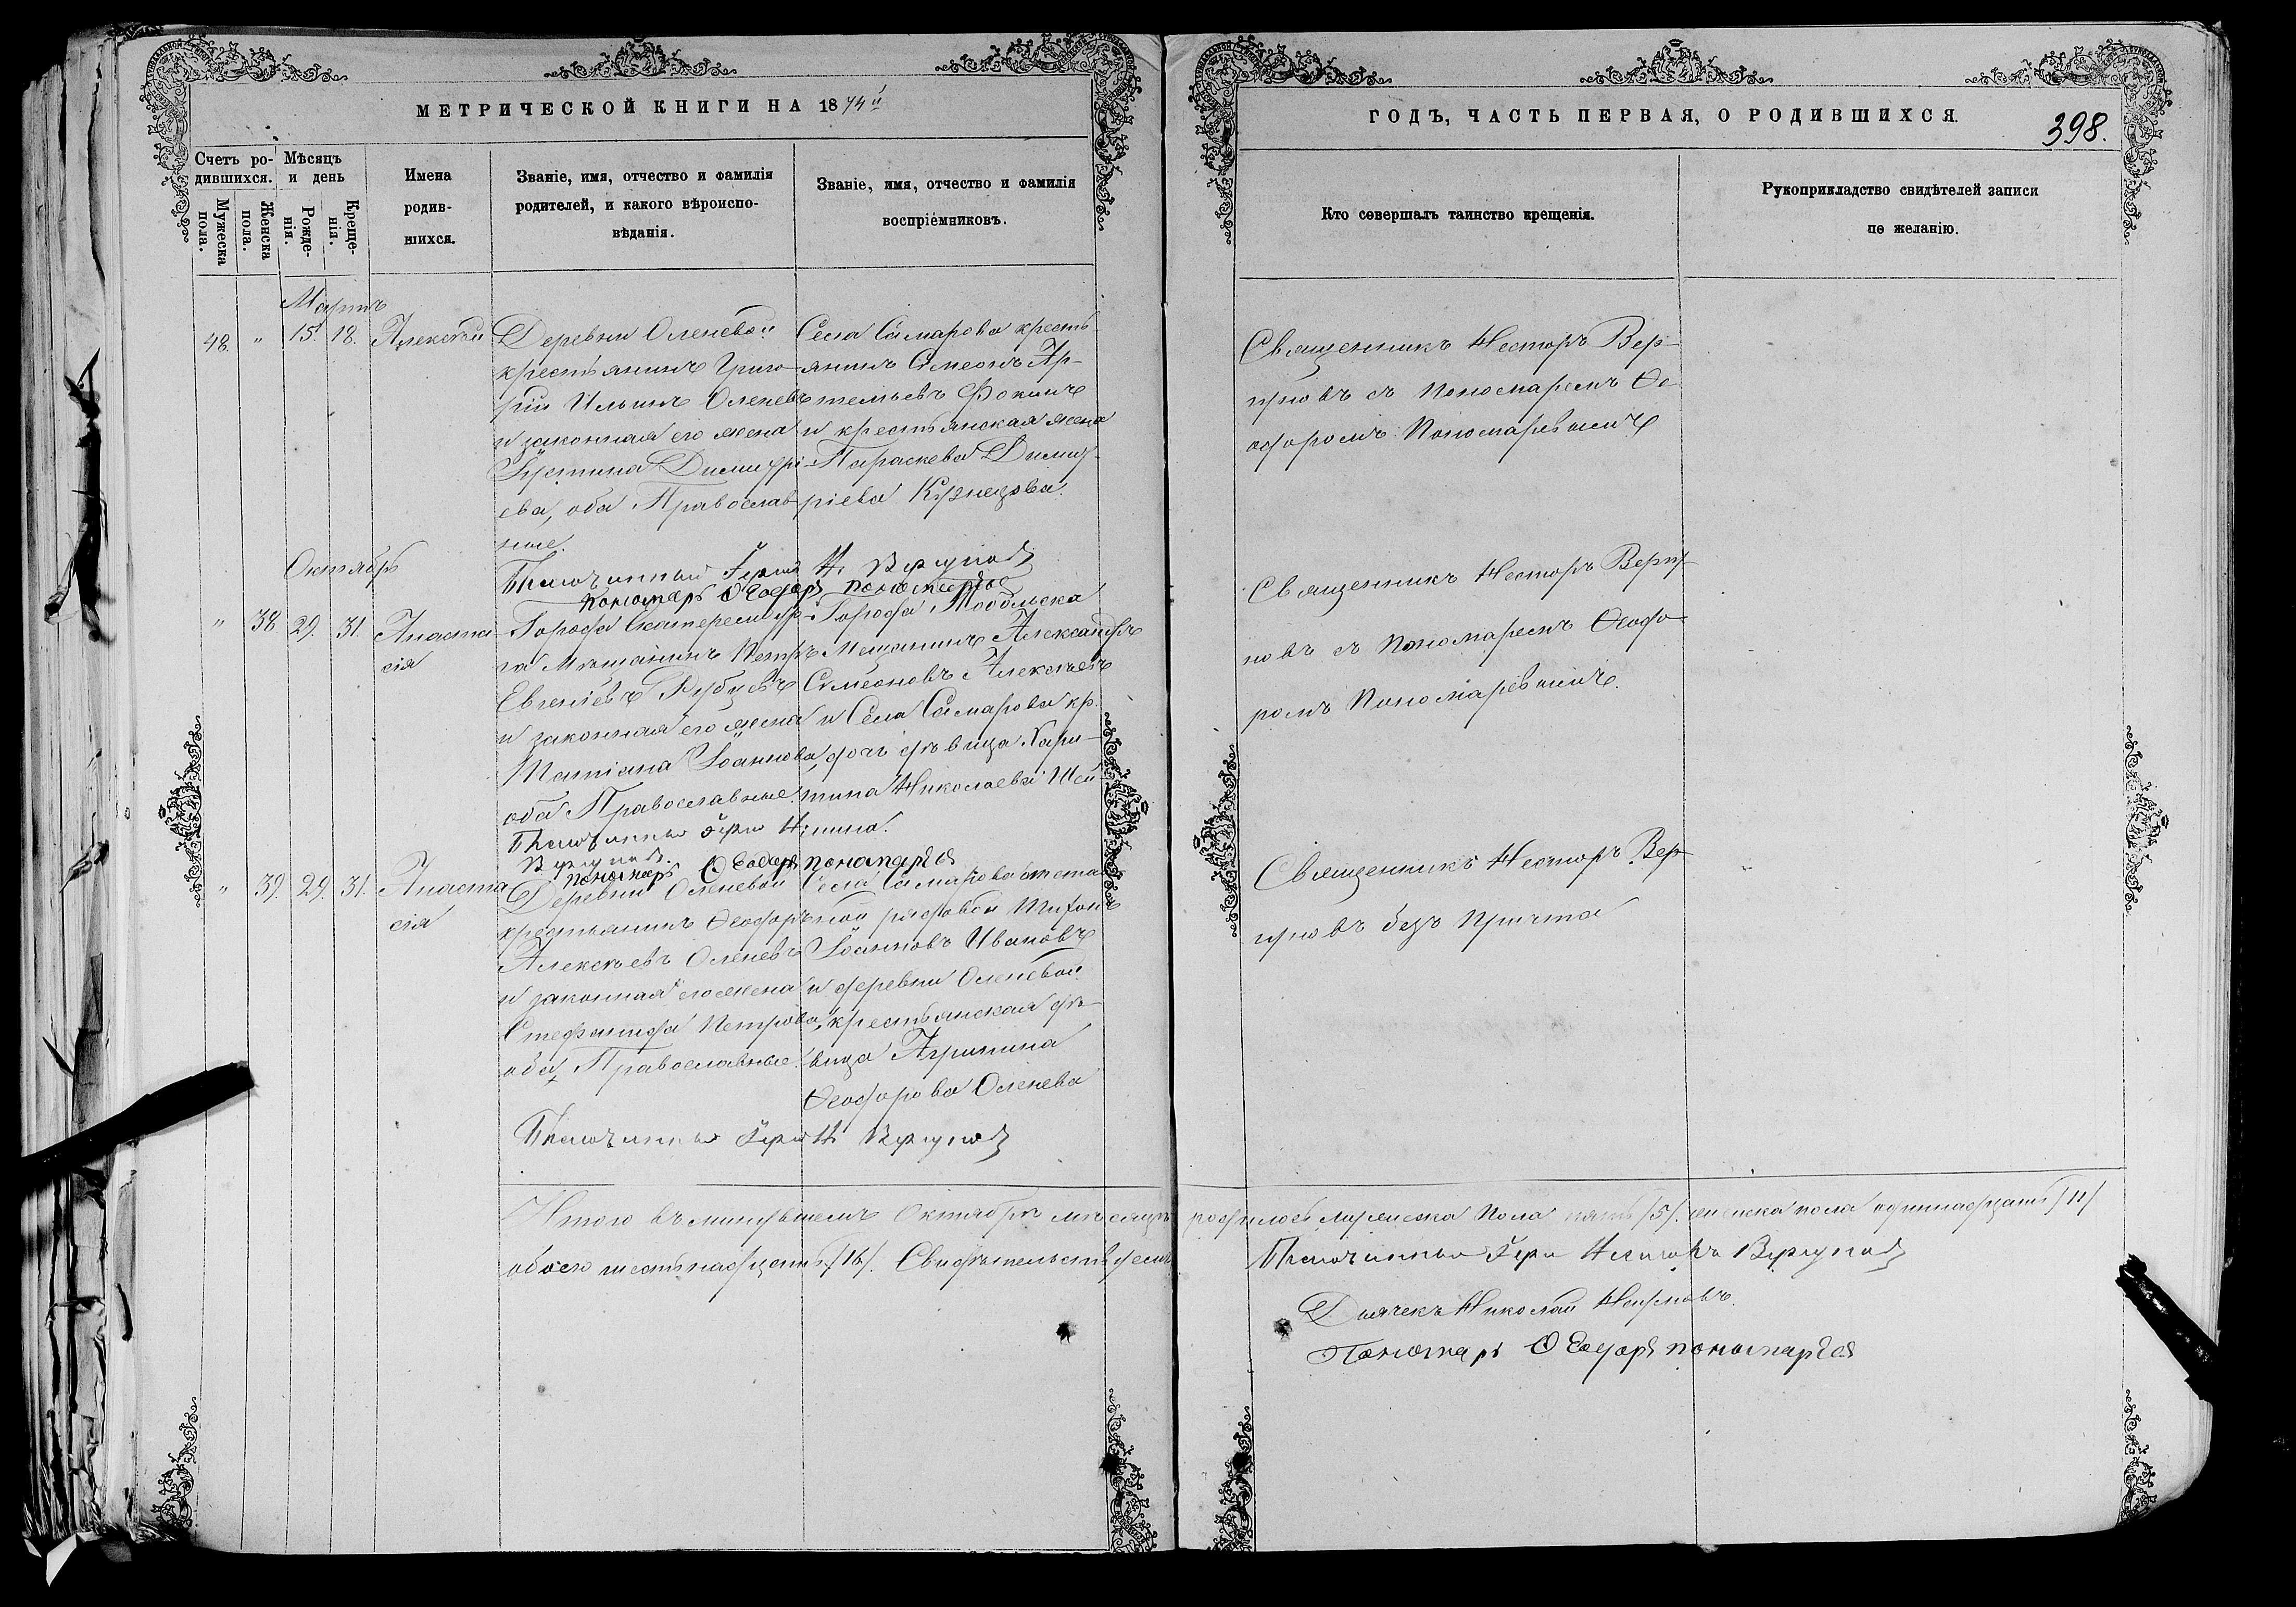 МЕТРИЧЕСКОЙ КНИГИ НА 1874й
ГОДЪ, ЧАСТЬ ПЕРВАЯ, О РОДИВШИХСЯ.
398.
Счетъ ро-
дившихся.
Мужеска
пола.
Женска
пола.
Мѣсяцъ
и день
Рожде-
нія.
Креще-
нія.
Имена
родив-
шихся.
Званіе, имя, отчество и фамилія
родителей, и какого вѣроиспо-
вѣданія.
Званіе, имя, отчество и фамилія
воспріемниковъ.
Кто совершалъ таинство крещенія.
Рукоприкладство свидѣтелей записи
по желанію.
Мартъ
48. " 15. 18. Алексѣй
Деревни Оленевой
крестьянинъ Григо-
рій Ильинъ Оленевъ
и законная его жена
Іустина Димитрі-
ева, оба Православ-
ные.
Села Самарова кресть-
янинъ Симеонъ Ар-
темьевъ Фокинъ
и крестьянская жена
Параскева Димит-
ріева Кузнецова.
Священникъ Несторъ Вер-
гуновъ съ Пономаремъ Ѳе-
одоромъ Пономаревымъ
Благочинный Іерей Н. Вергуновъ
Пономарь Ѳеодоръ Пономаревъ
Октябрь
" 38. 29. 31. Анаста-
сія
Города Екатеринбур-
га Мѣщанинъ Петръ
Евгеніевъ
и законная его жена
Татіана Іоаннова,
оба Православные.
Города Тобольска
Мещанинъ Александръ
Симеоновъ Алексѣевъ
и Села Самарова кр.
дочь дѣвица Хари-
тина Николаева Шей-
мина.
Священникъ Несторъ Вергу-
новъ съ Пономаремъ Ѳеодо-
ромъ Пономаревымъ.
Благочинный Іерей Н.
Вергуновъ.
Пономарь Ѳеодоръ Пономаревъ
" 39. 29. 31. Анаста-
сія
Деревни Оленевой
крестьянинъ Ѳеодоръ
Алексѣевъ Оленевъ
и законная его жена
Стефанида Петрова,
оба Православные.
Села Самарова отстав-
ной рядовой Тихонъ
Іоанновъ Ивановъ
и деревни Оленевой
крестьянская дѣ-
вица Агрипина
Ѳеодорова Оленева
Священникъ Несторъ Вер-
гуновъ безъ Причта
Благочинный Іерей Н. Вергуновъ
Итого въ минувшемъ Октябрѣ мѣсяцѣ родилось мужеска пола пять /5/. женска пола одиннадцать /11/
обоего шестнадцать /16/. Свидѣтельствуемъ
Благочинный Іерей Несторъ Вергуновъ
Дьячекъ Николай
Пономарь Ѳеодоръ Пономаревъ